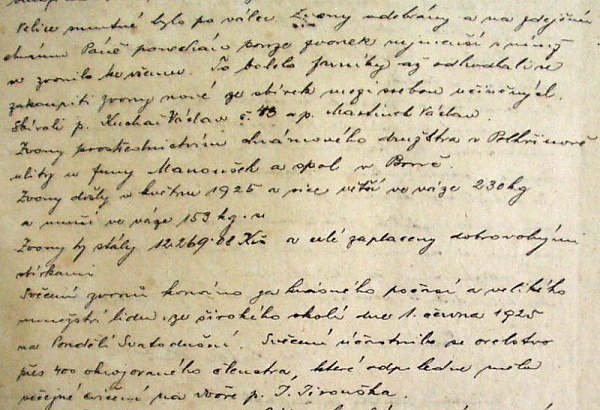 Velice smutné bylo po válce. Zvony odebrány a na zdejším
chrámu Páně ponechán pouze zvonek nejmenší s nímž
se zvonilo ke všemu. To bolelo farníky až odhodlali se
zakoupiti zvony nové ze sbírek mezi sebou učiněných.
Sbírali p. Kuchař Václav č. 43 a p. Martinek Václav.
Zvony prostřednictvím chrámového družstva v Pelhřimově
ulity u firmy Manoušek a spol v Brně.
Zvony došly v květnu 1925 a sice větší ve váze 230 kg
a menší ve váze 153 kg.
Zvony ty stály 12.269.08 Kč a celé zaplaceny dobrovolnými
sbírkami
Svěcení zvonů konáno za krásného počasí a velikého
množství lidu ze širokého okolí dne 1. června 1925
na Pondělí Svatodušní. Svěcení účastnilo se orelstvo
přes 400 okrojovaného členstva, které odpoledne mělo
veřejné cvičení na dvoře p. J. Jirouška.